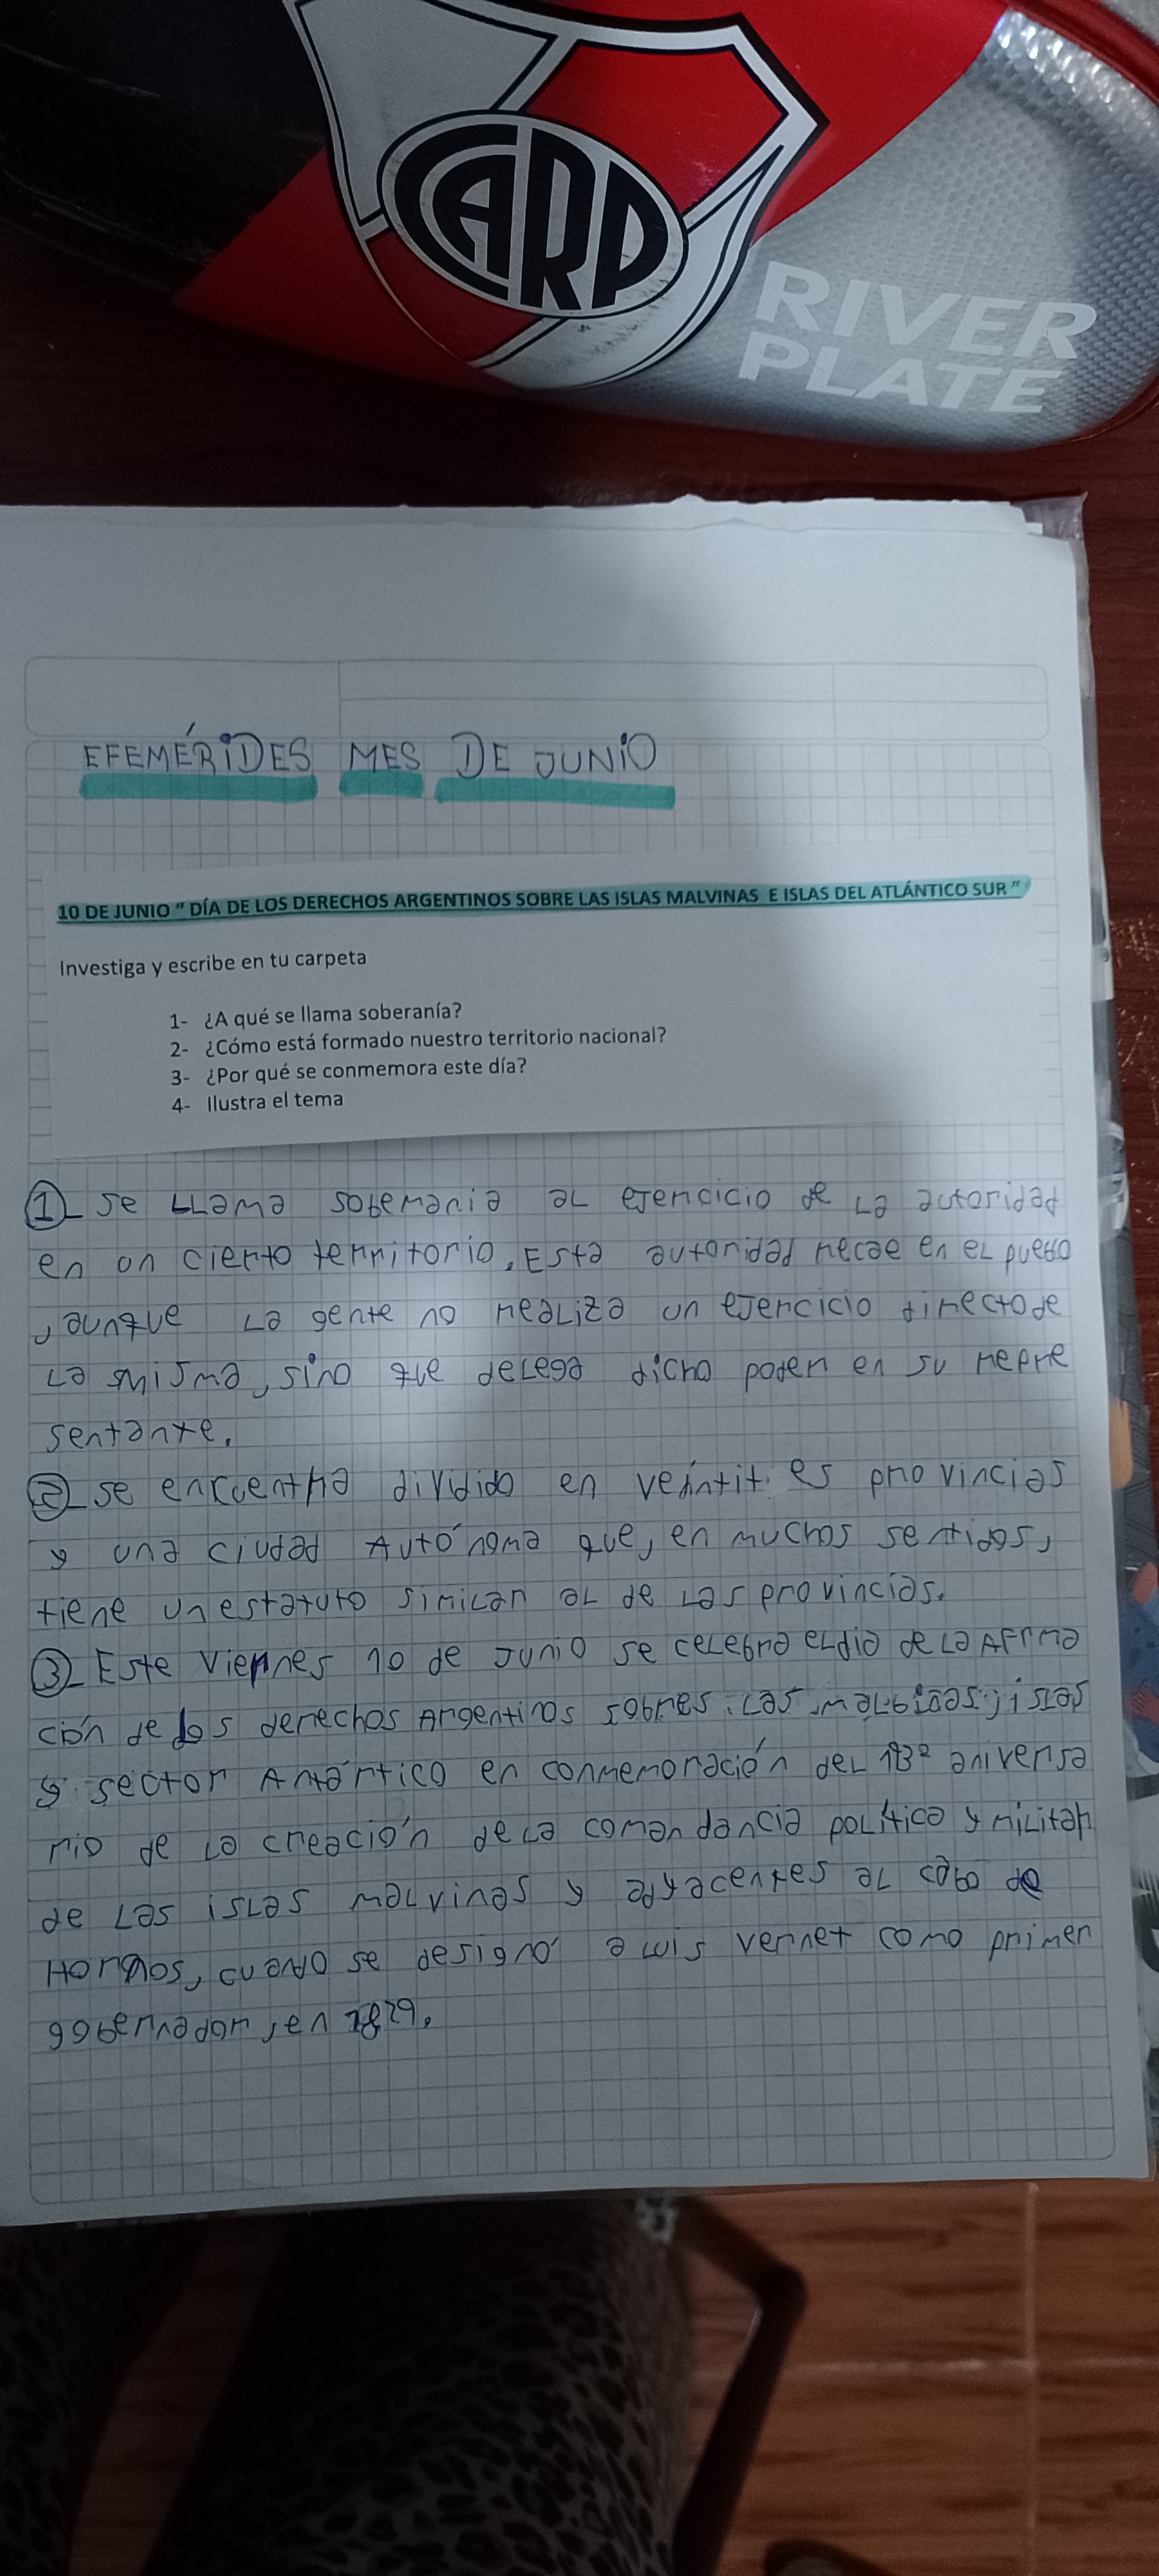 CARP
RIVER
PLATE
EFEMÉRIDES MES DE JUNIO
10 DE JUNIO " DÍA DE LOS DERECHOS ARGENTINOS SOBRE LAS ISLAS MALVINAS E ISLAS DEL ATLÁNTICO SUR "
Investiga y escribe en tu carpeta
1- ¿A qué se llama soberanía?
2- ¿Cómo está formado nuestro territorio nacional?
3- ¿Por qué se conmemora este día?
4- Ilustra el tema
1- se LLama soberania aL ejercicio de La autoridad
en un cierto territorio. Esta autoridad recae en eL pueblo
, aunque La gente no reaLiza un ejercicio directo de
La misma, sino que deLega dicho poder en su repre
sentante.
2- se encuentra dividido en provincias
y una ciudad Autónoma que, en muchos sentidos,
tiene un estatuto simiLar aL de Las provincias.
3- Este Viernes 10 de Junio se ceLebra eL dia de La Afirma
ción de Los derechos Argentinos sobre Las islas
y sector Antártico en conmemoración deL 193º aniversa
rio de La creación de La comandancia poLítica y miLitar
de Las isLas maLvinas y adyacentes aL cabo de
Hornos, cuando se designó a Luis vernet como primer
gobernador, en 1829.